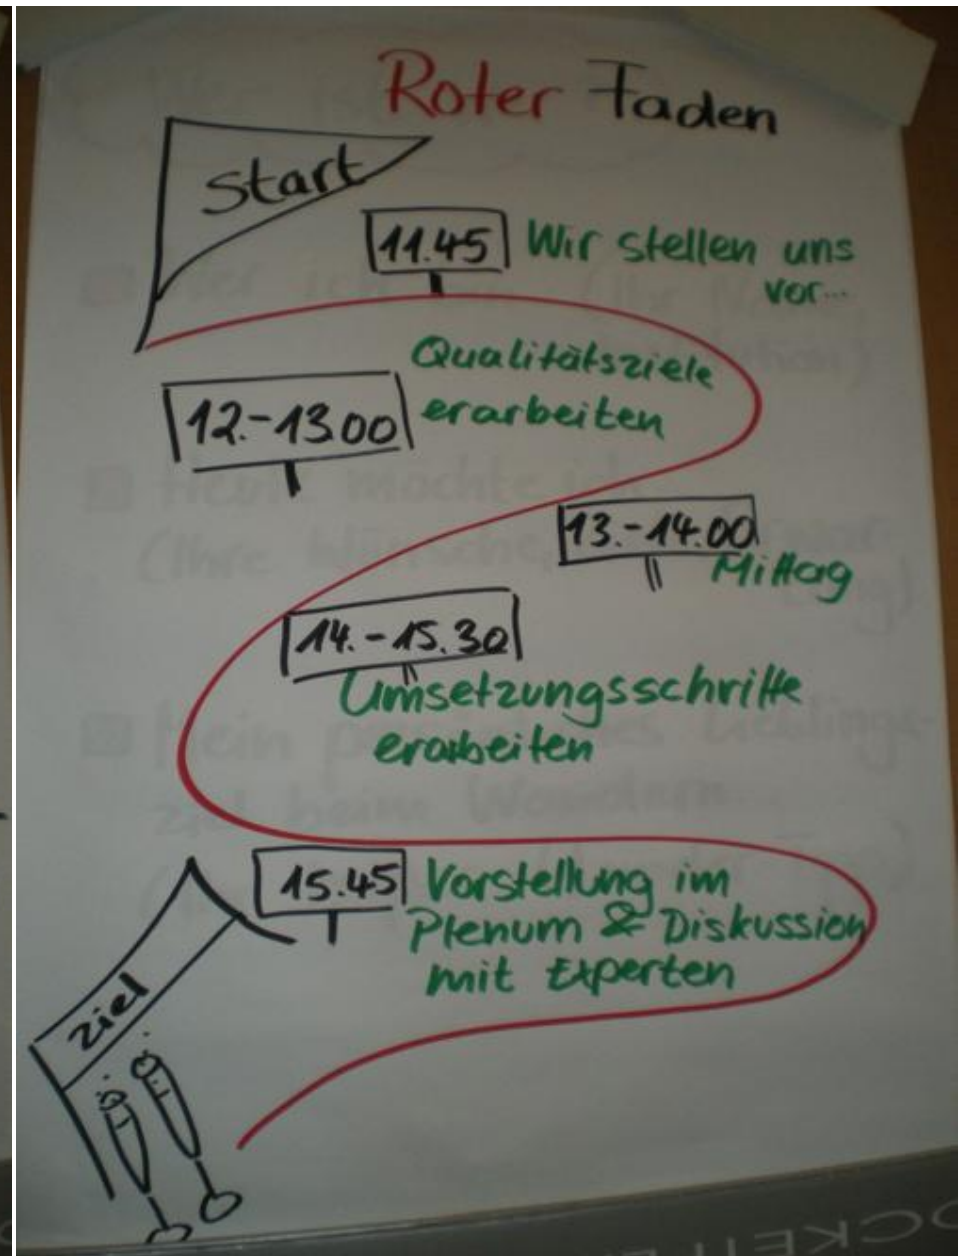 Roter Faden
Start
11.45 Wir stellen uns
vor...
Qualitätsziele
12.-13.00 erarbeiten
13.-14.00
Mittag
14.-15.30
Umsetzungsschritte
erarbeiten
15.45 Vorstellung im
Plenum & Diskussion
mit Experten
Ziel